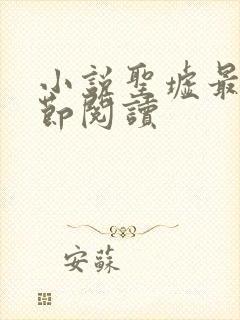 小說聖墟最
節閱讀
安蘇